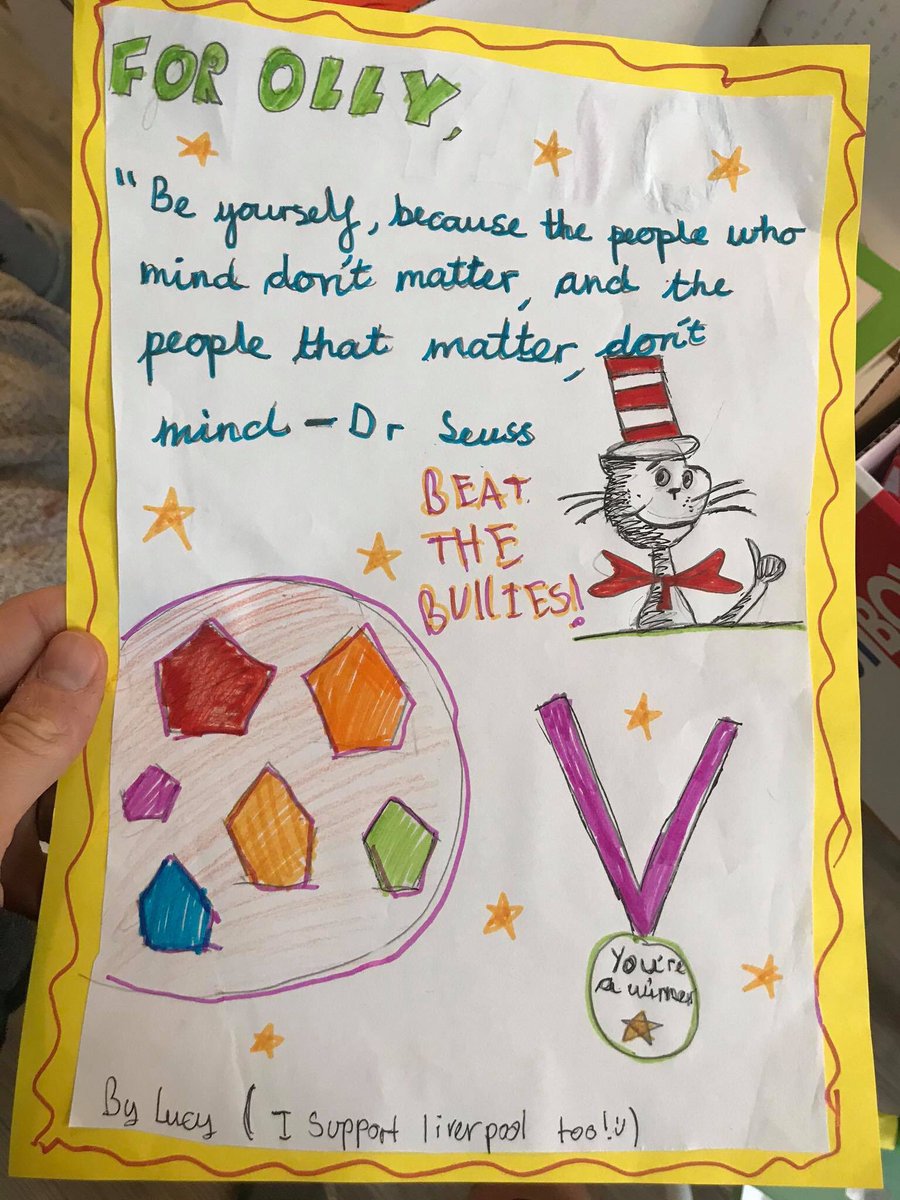 FOR OLLY,
"Be yourself, because the people who
mind don't matter, and the
people that matter, don't
mind - Dr Seuss
BEAT
THE
BULLIES!
You're
a winner
By Lucy ( I support liverpool too!:))